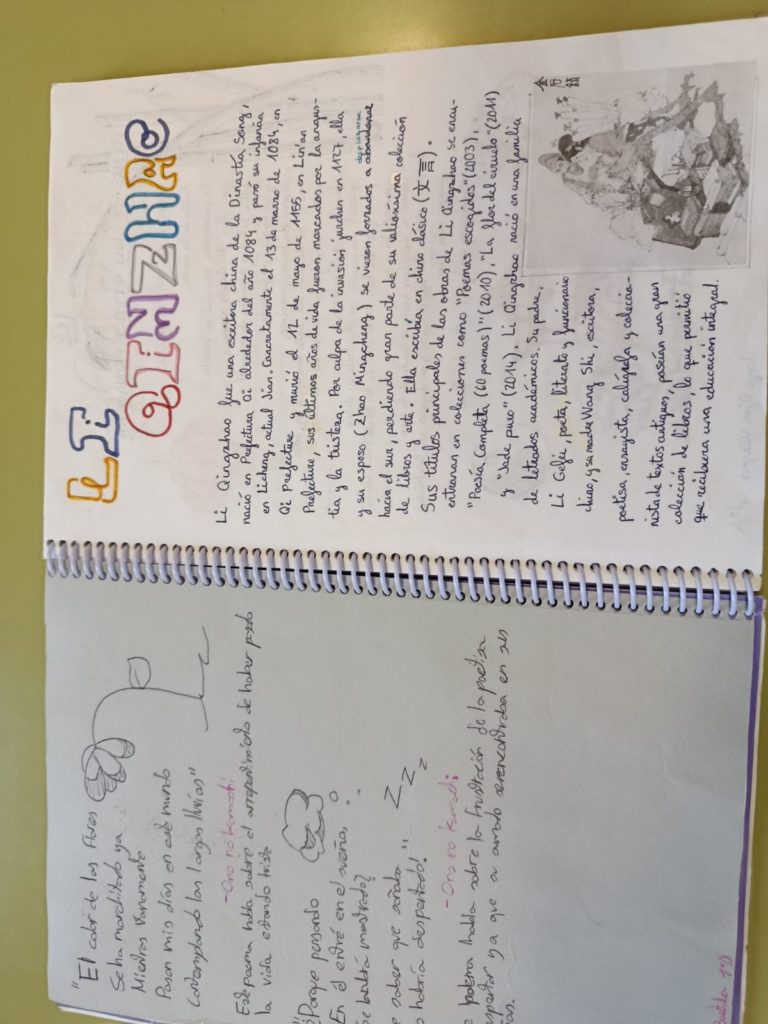 "El color de las Flores
Se ha marchitado ya
Mientras vanamente
Pasan mis días en este mundo
Contemplando las largas lluvias"
- Ono no Komachi
Este poema habla sobre el arrepentimiento de haber pasado
la vida estando triste
Porque pensando
En él entré en el sueño,
se habría mostrado?
saber que soñaba
no habría despertado! "
zzz
- Ono no Komachi
poema habla sobre la frustración de la poetisa
despertar ya que su amado se encontraba en sus
LI
QINZHAO
Li Qingzhao fue una escritora china de la Dinastía Song,
nació en Prefectura Qi alrededor del año 1084 y pasó su infancia
en Licheng, actual Jian. Concretamente el 13 de marzo de 1084, en
Qi Prefecture y murió el 12 de mayo de 1155, en Lin'an
Prefecture, sus últimos años de vida fueron marcados por la angus-
tia y la tristeza. Por culpa de la invasión jurchen en 1127, ella
y su esposo (Zhao Mingcheng) se vieron forzados a desplazarse
hacia el sur, perdiendo gran parte de su valiosísima colección
de libros y arte. Ella escribía en chino clásico (文言).
Sus títulos principales de las obras de Li Qingzhao se encu-
entraran en colecciones como "Poemas escogidos" (2003),
"Poesía Completa (60 poemas)" (2010), "La flor del ciruelo" (2011)
y "Jade puro" (2014). Li Qingzhao nació en una familia
de letrados académicos. Su padre,
Li Gefei, poeta, literato y funcionario
chino, y su madre Wang Shi, escritora,
poetisa, ensayista, calígrafa y coleccio-
nista de textos antiguos, poseían una gran
colección de libros, lo que permitió
que recibiera una educación integral.